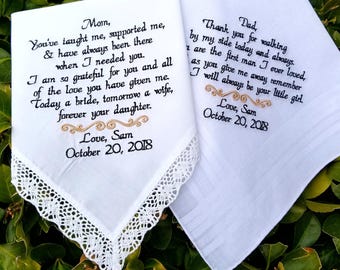 Mom,
You've taught me, supported me,
& have always been there
when I needed you.
I am so grateful for you and all
of the love you have given me.
Today a bride, tomorrow a wife,
forever your daughter.
Love, Sam
October 20, 2018
Dad,
Thank you for walking
by my side today and always.
are the first man I ever loved.
as you give me away remember
I will always be your little girl.
Love, Sam
October 20, 2018